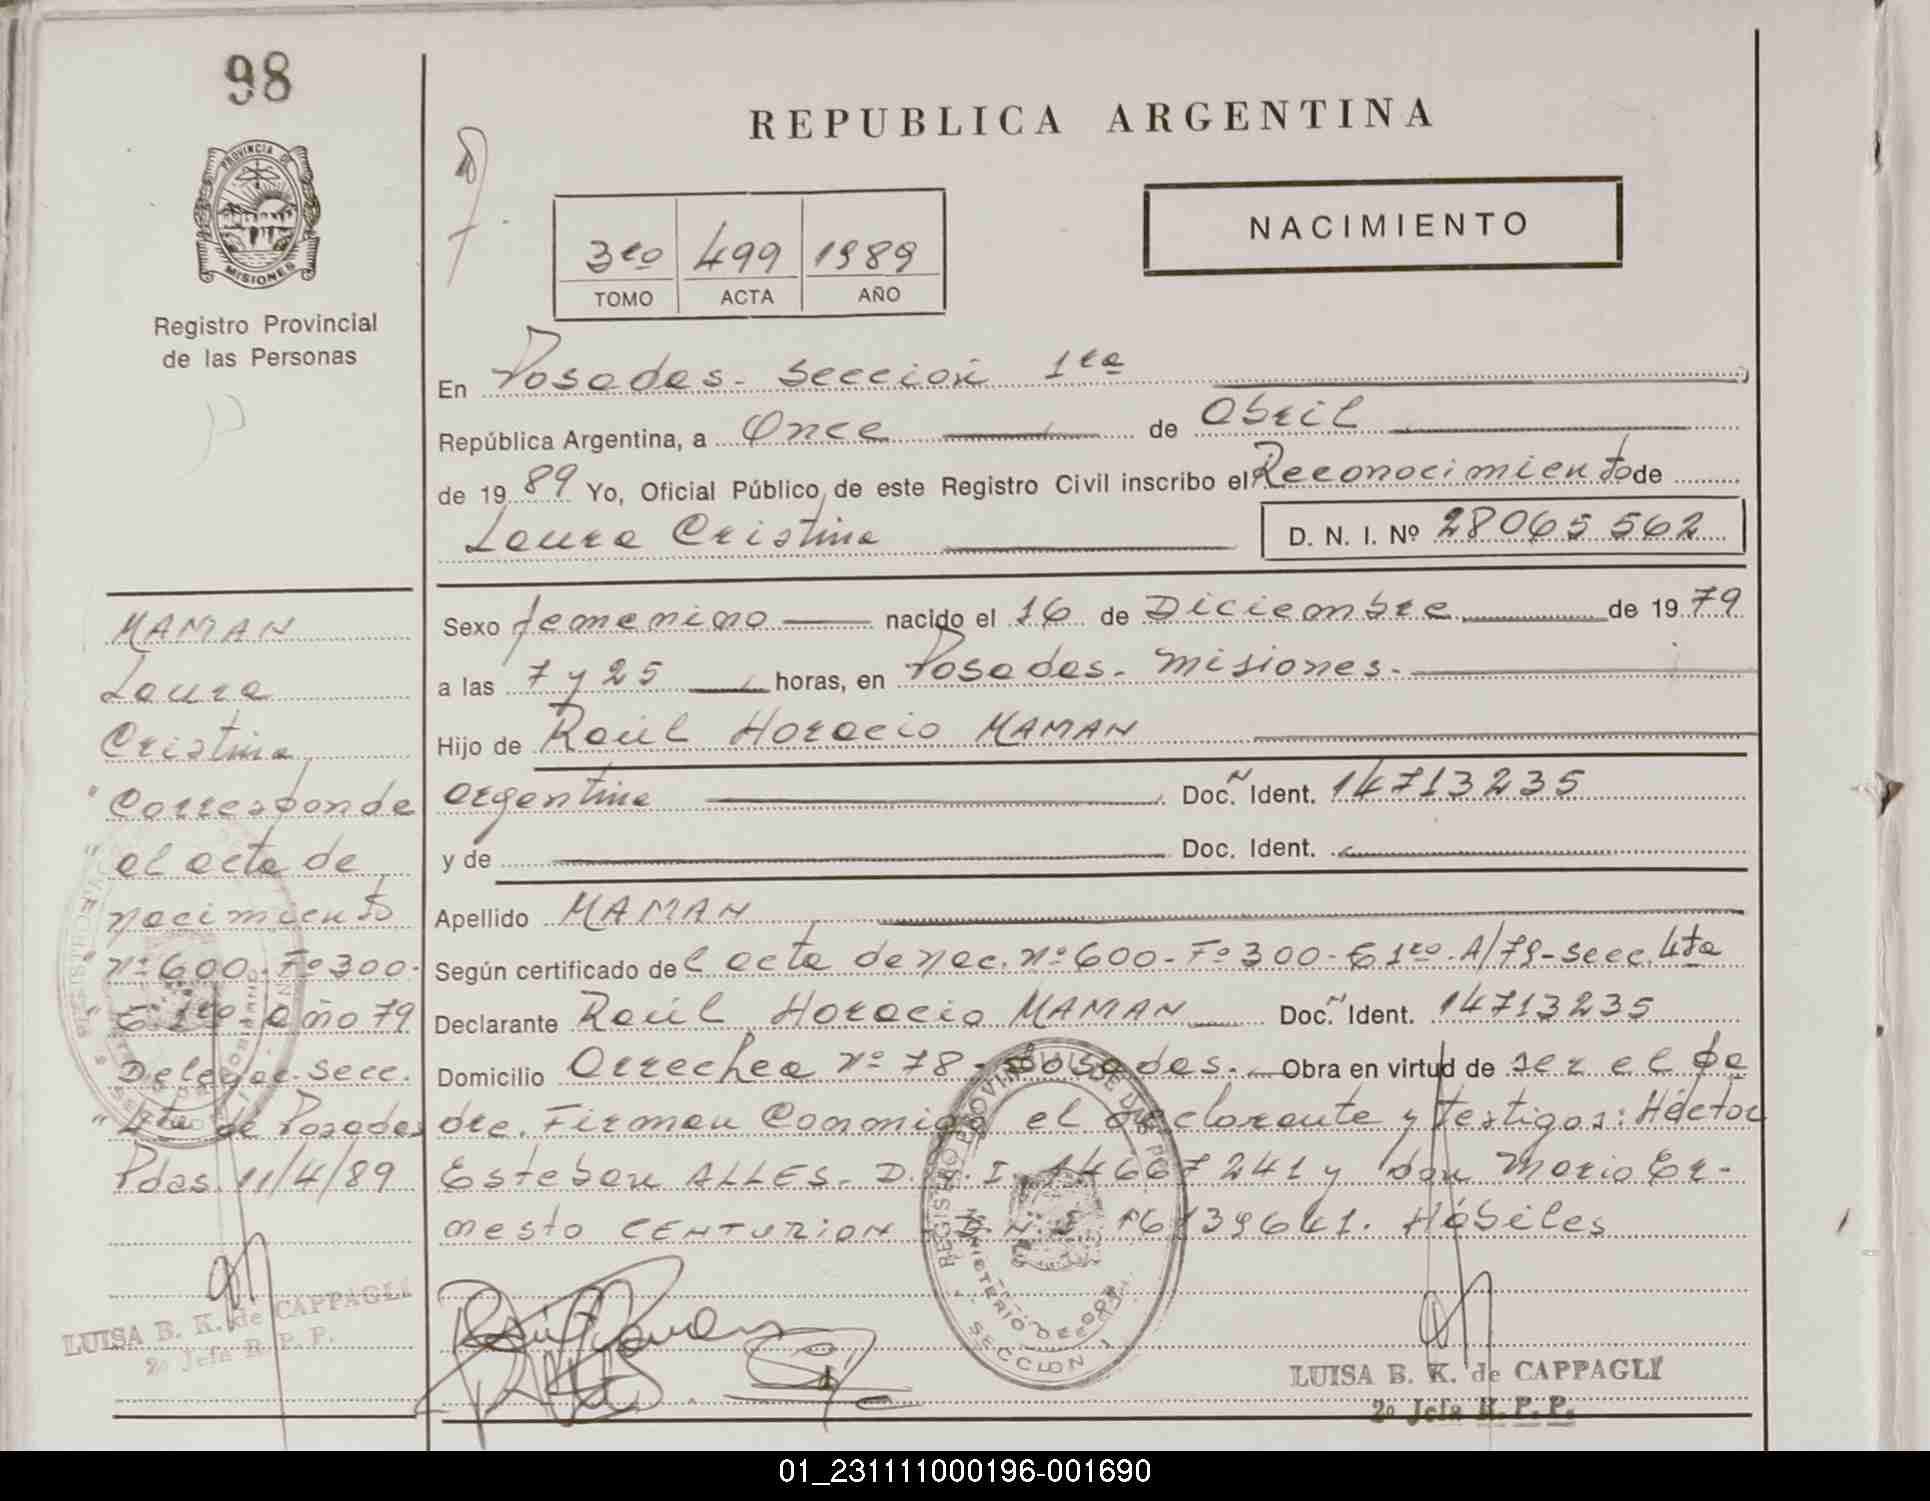 98
REPUBLICA ARGENTINA
PROVINCIA DE
MISIONES
Registro Provincial
de las Personas
NACIMIENTO
3ro 499 1989
TOMO ACTA AÑO
En Posadas - Sección 1ra
República Argentina, a Once de Abril
de 1989 Yo, Oficial Público de este Registro Civil inscribo el Reconocimiento de
Laura Cristina D. N. I. Nº 28065562
Sexo femenino nacido el 16 de Diciembre de 1979
a las 7 y 25 horas, en Posadas - Misiones.-
Hijo de Raúl Horacio MAMAN
argentina Doc. Ident. 14713235
y de Doc. Ident.
Apellido MAMAN
Según certificado del acta de nac. nº 600 - Fº 300 - t 1ro - A/79 - Secc. 4ta
Declarante Raúl Horacio MAMAN Doc. Ident. 14713235
Domicilio Arrechea nº 78 - Posadas.- Obra en virtud de ser el pa
dre. Firman Conmigo el declarante y testigos: Héctor
Esteban ALLES - D.N.I. 14667241 y don Mario Er-
nesto CENTURION D.N.I. 16139641. Hábiles
MAMAN
Laura
Cristina
"Corresponde
"al acta de
nacimiento
"nº 600 - Fº 300 -
"t 1ro - año 79
Delegac. Secc.
"4ta de Posadas
Pdas. 11/4/89
LUISA B. K. de CAPPAGLI
2º Jefa R. P. P.
REGISTRO PROVINCIAL DE LAS
MINISTERIO DE GOB
SECCION 1
LUISA B. K. de CAPPAGLI
2º Jefa R. P. P.
01_231111000196-001690